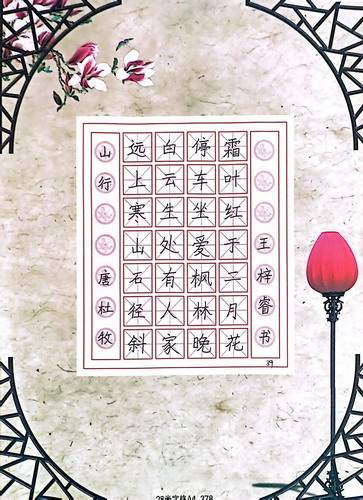 山行 唐杜牧
远上寒山石径斜
白云生处有人家
停车坐爱枫林晚
霜叶红于二月花
王梓睿书
39